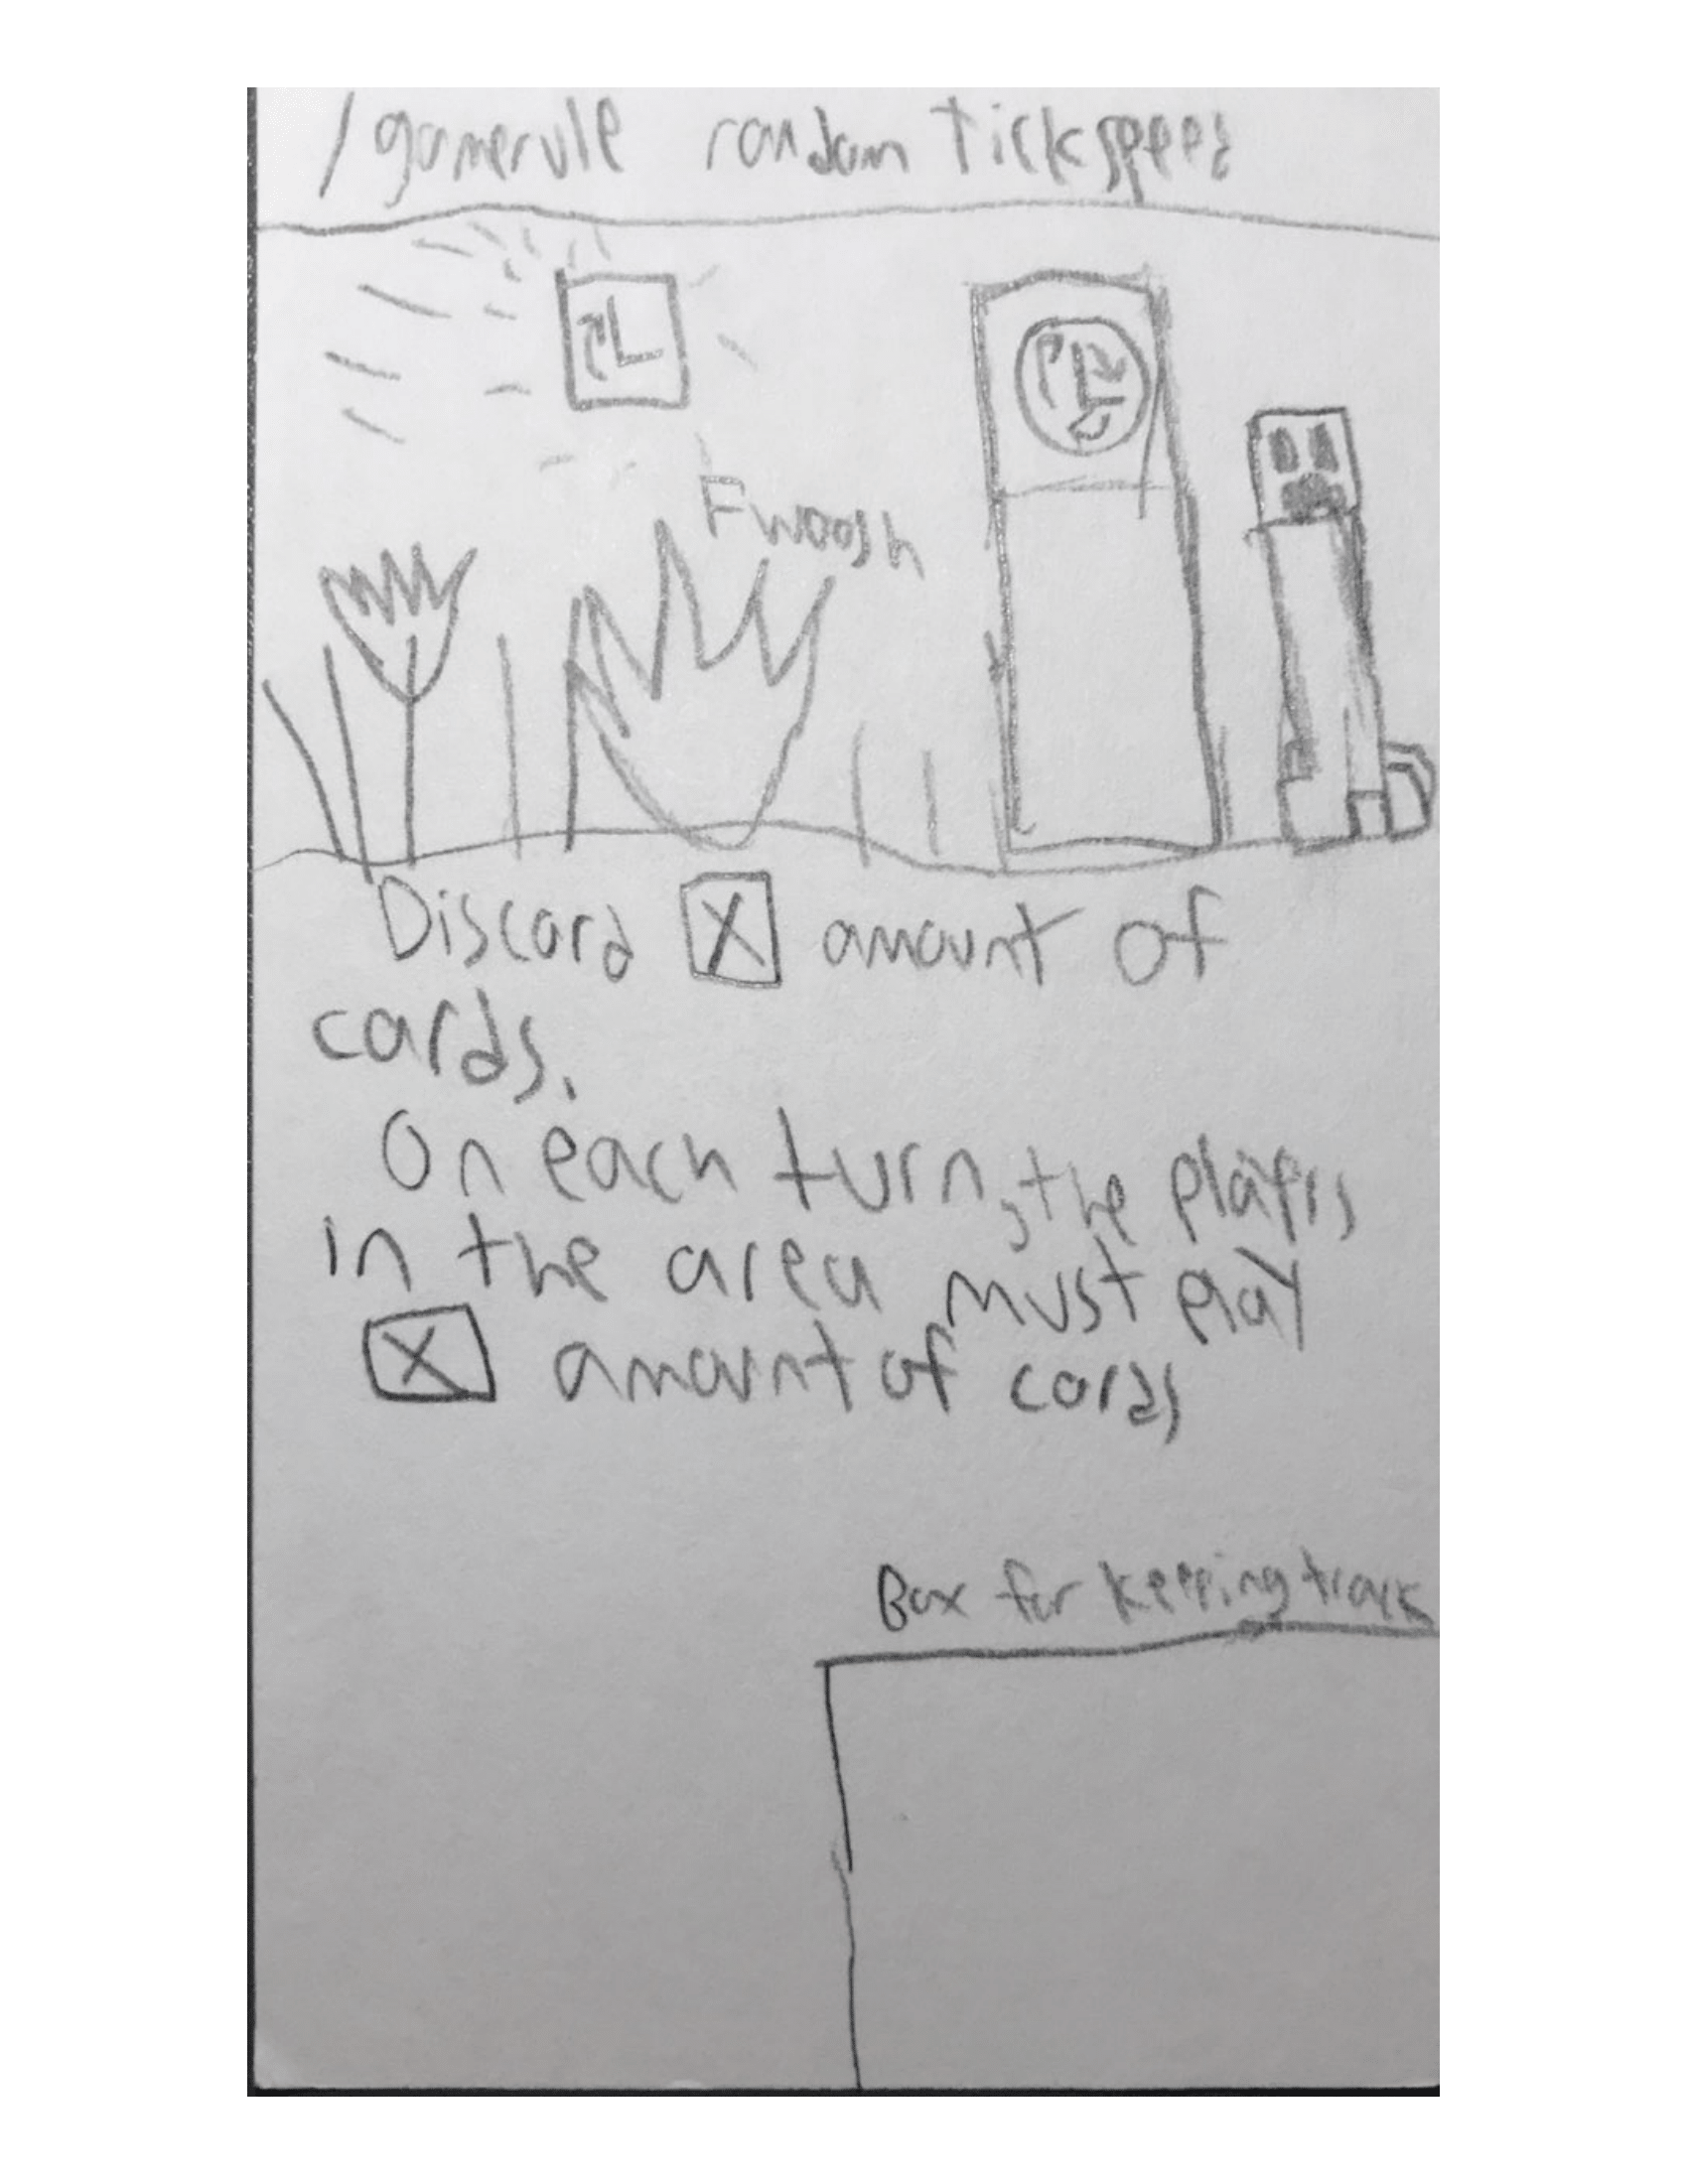 /gamerule random tickspeed
Fwoosh
Discard X amount of
cards.
On each turn, the players
in the area must play
X amount of cards
Box for keeping track